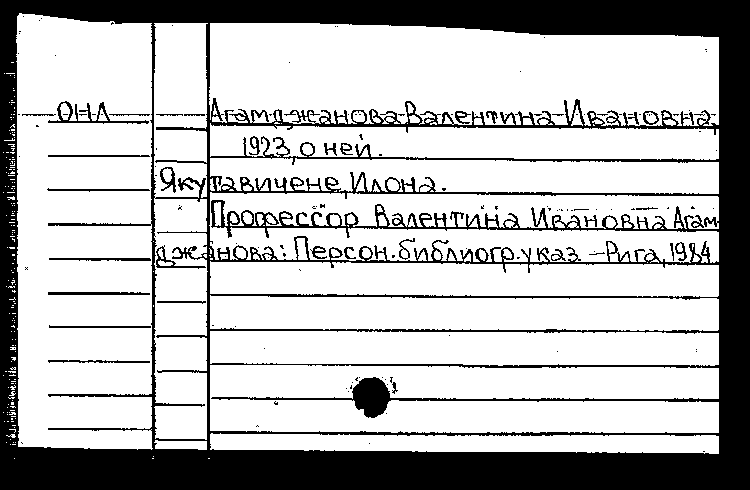 ОНЛ Агамджанова Валентина Ивановна,
1923, о ней.
Якутавичене, Илона.
Профессор Валентина Ивановна Агам-
джанова: Персон. библиогр. указ. – Рига, 1984.